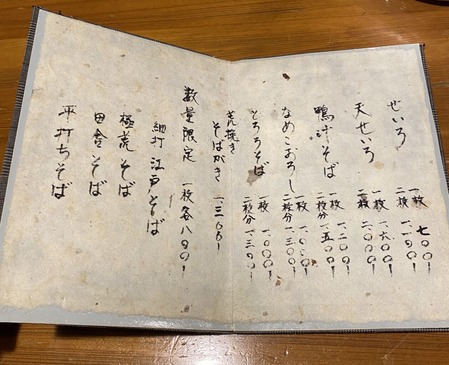 せいろ 一枚 七〇〇!
二枚 一、一〇〇!
天せいろ 一枚 一、六〇〇!
二枚 二、〇〇〇!
鴨汁そば 一枚 一、二〇〇!
二枚分 一、五〇〇!
なめこおろし 一枚 一、〇〇〇!
二枚分 一、三〇〇!
とろろそば 一枚 一、〇〇〇!
二枚分 一、三〇〇!
荒挽き
そばがき 一、三〇〇!
数量限定 一枚各八〇〇!
細打 江戸そば
極荒そば
田舎そば
平打ちそば